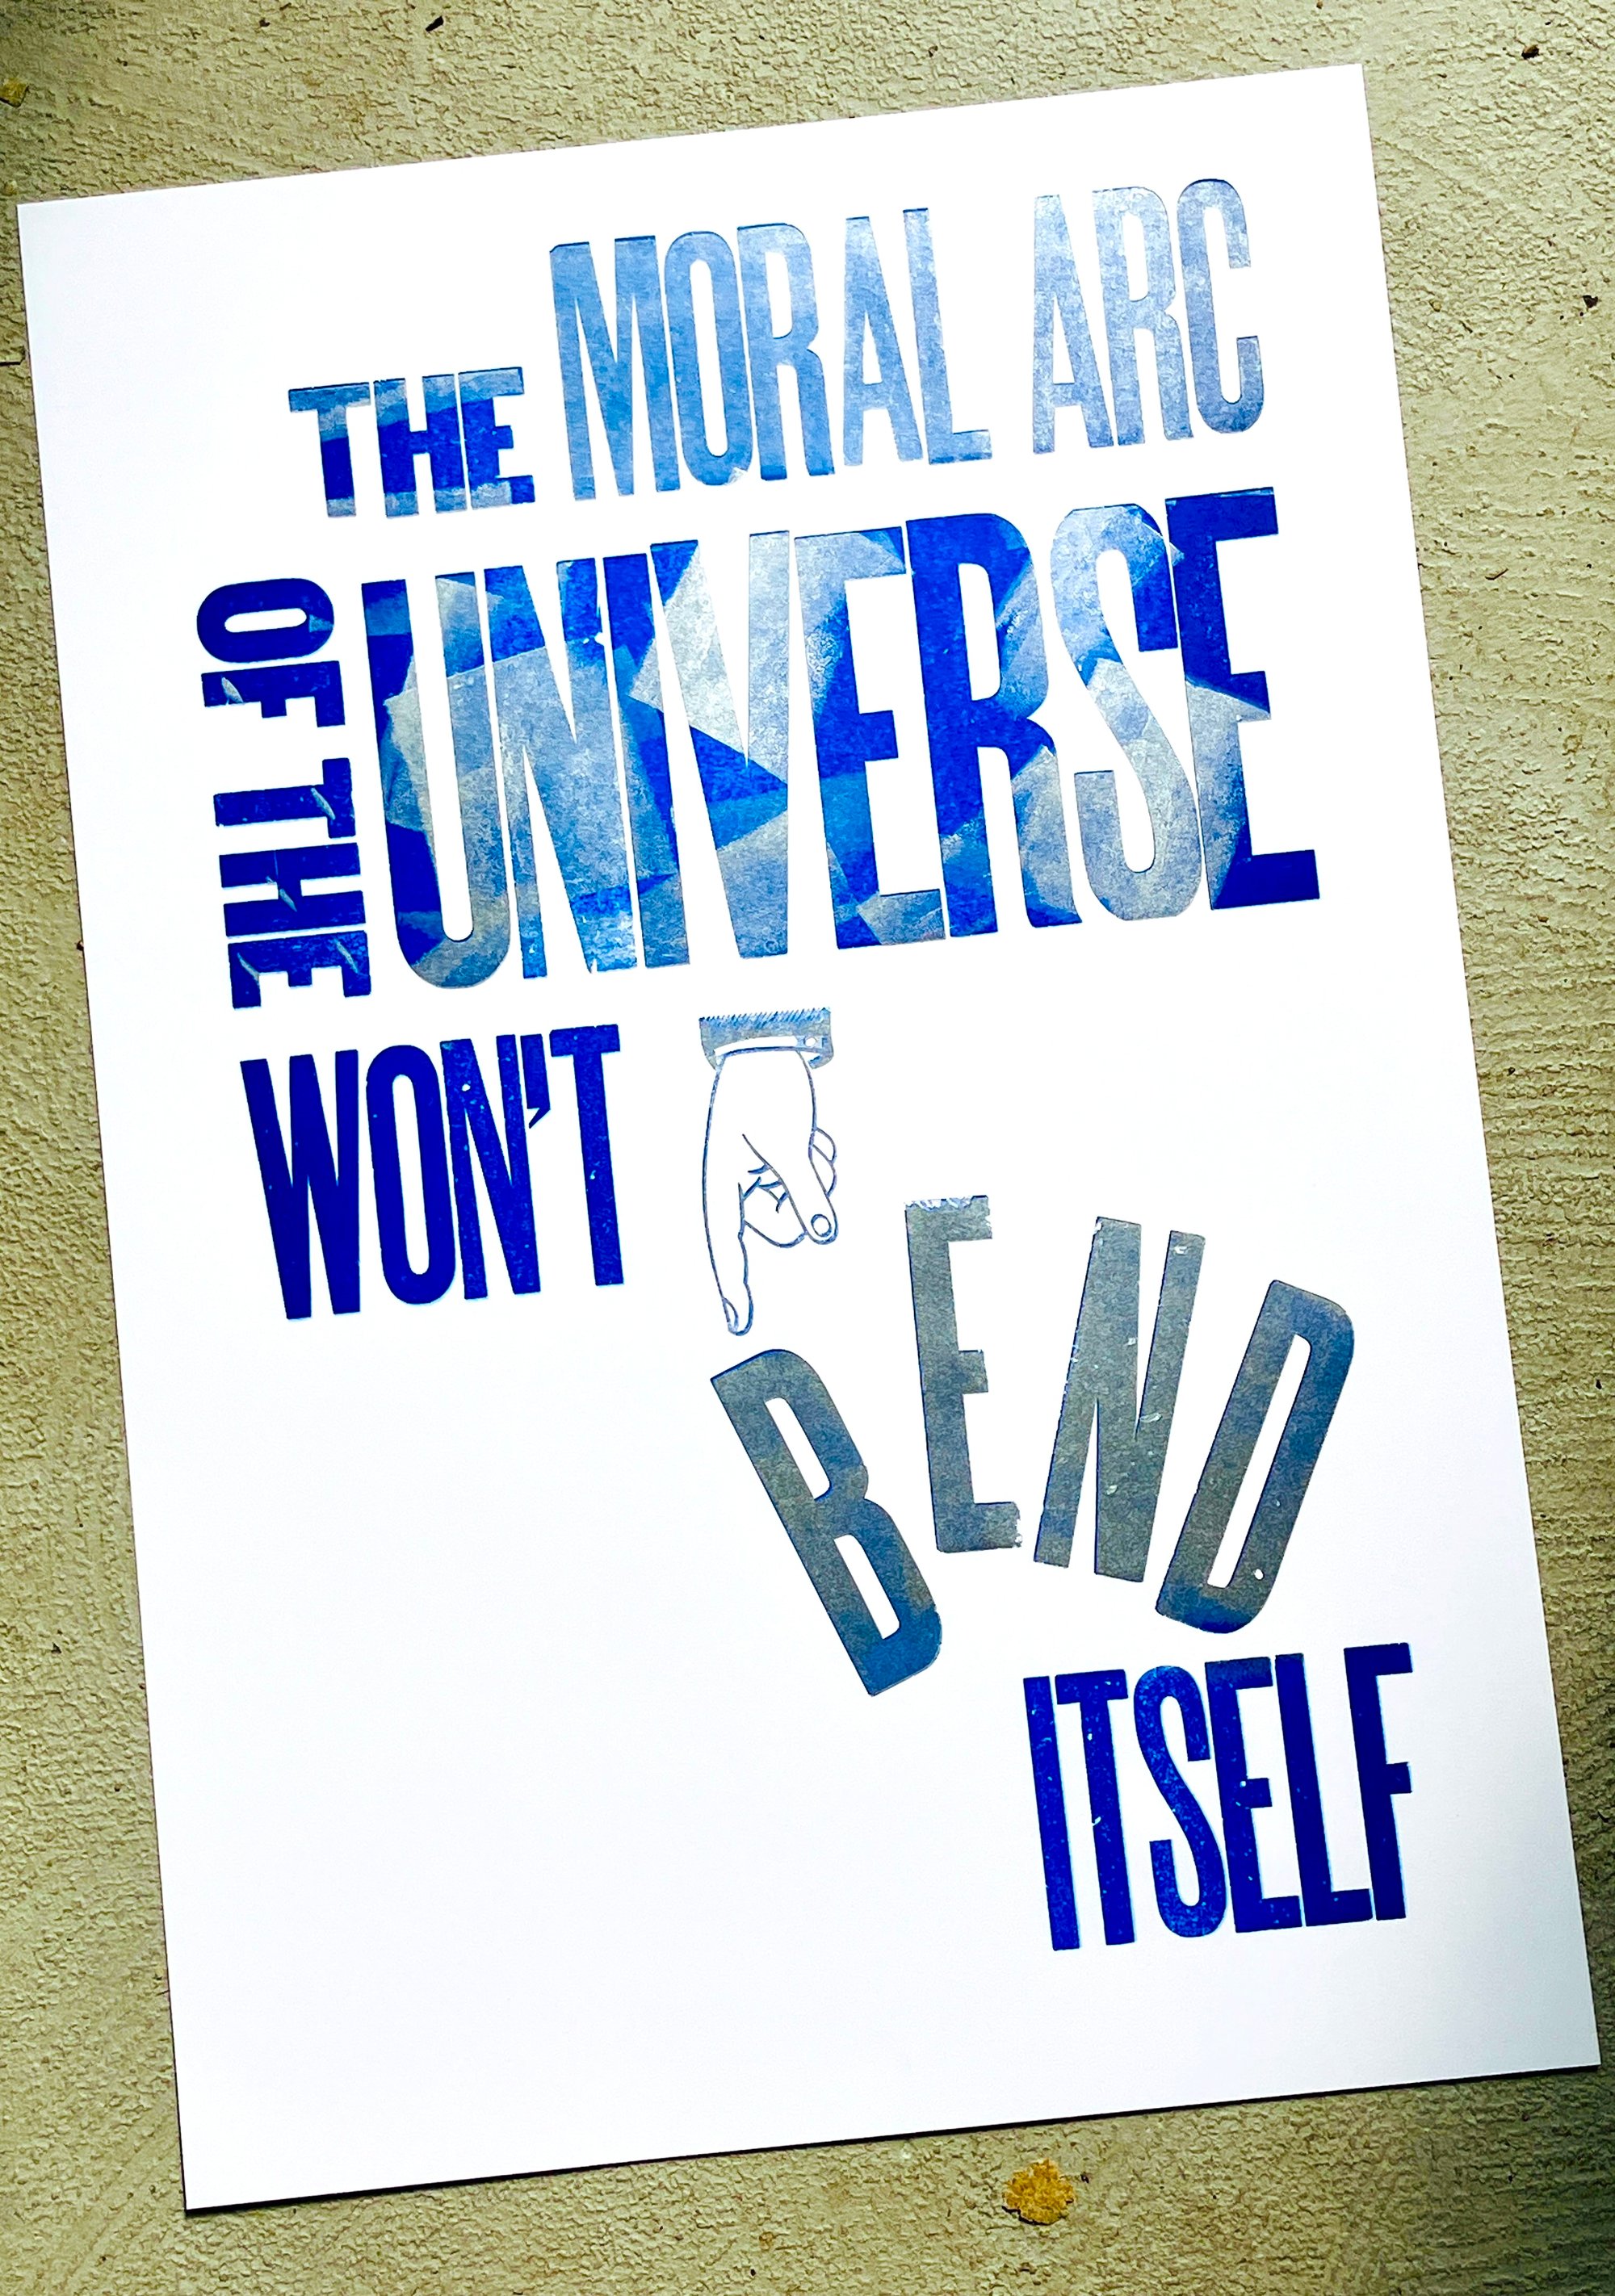 THE MORAL ARC
OF THE
UNIVERSE
WON'T
BEND
ITSELF